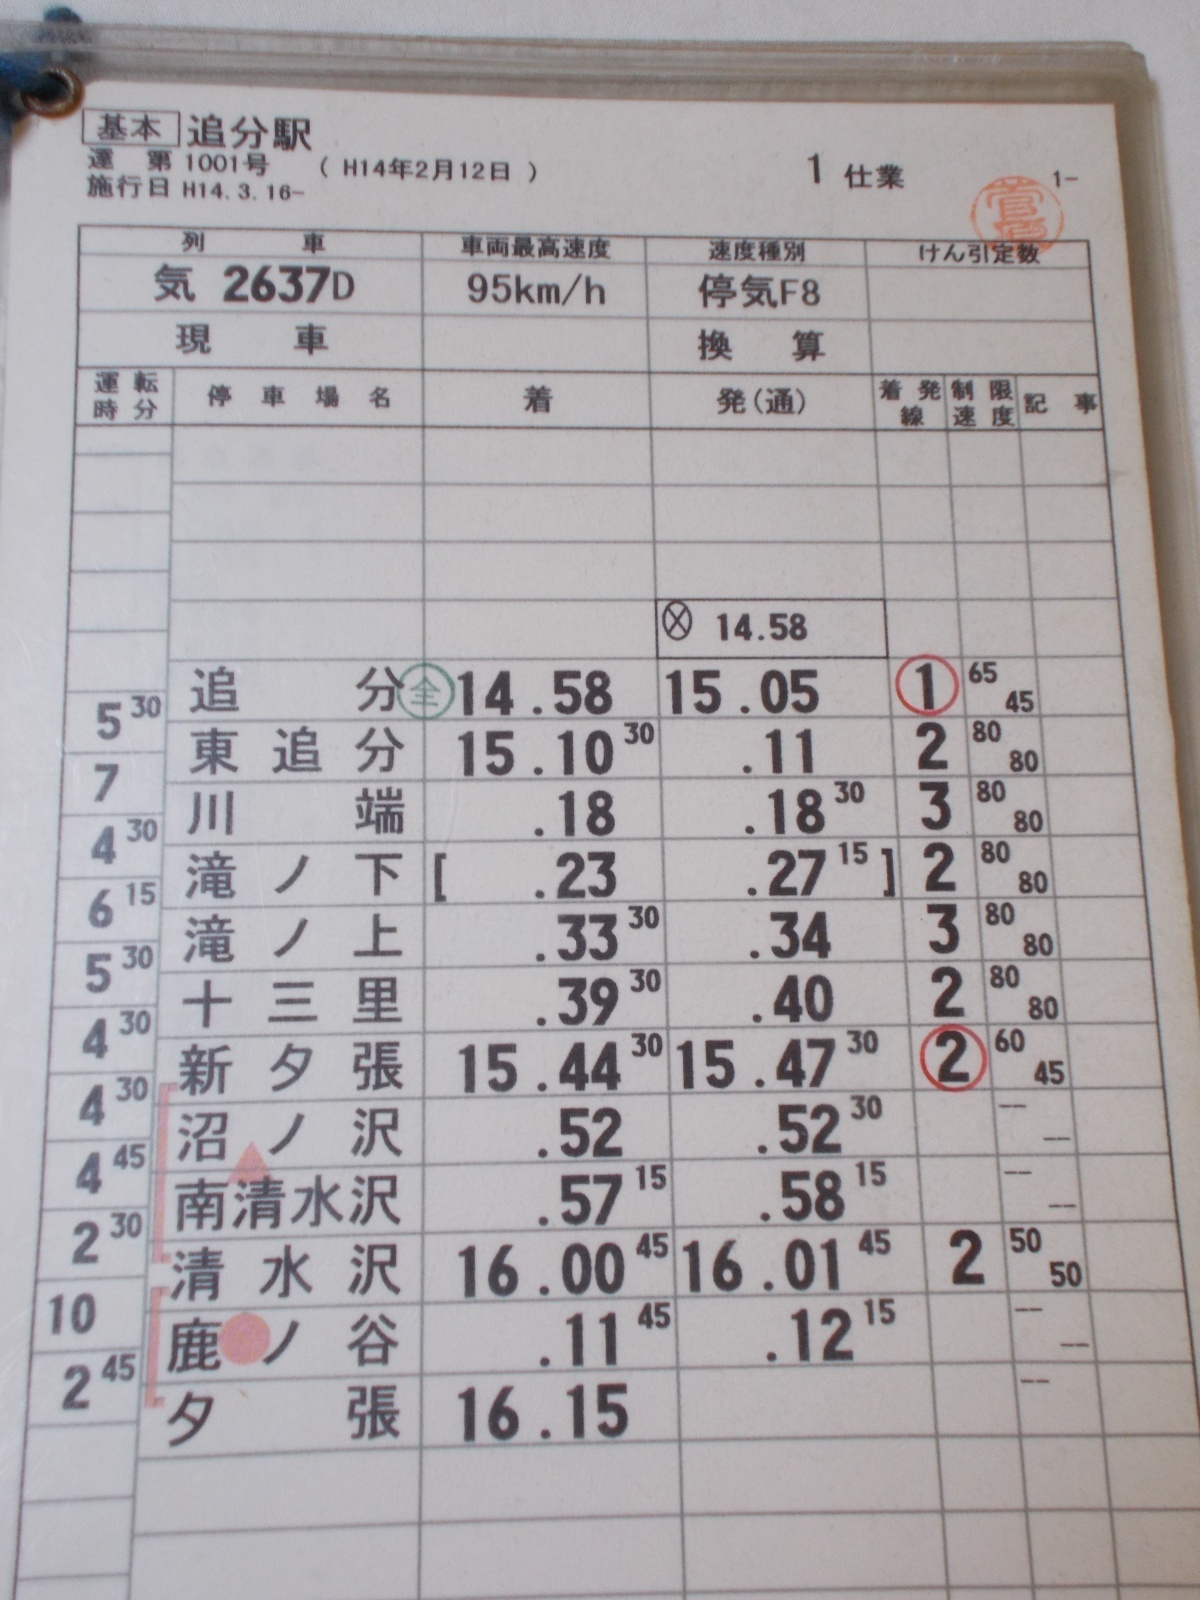 基本 追分駅
運 第 1001号 ( H14年2月12日 )
施行日 H14. 3. 16-
1 仕業
1-
列 車 車両最高速度 速度種別 けん引定数
気 2637D 95km/h 停気F8
現 車 換 算
運転時分 停車場名 着 発(通) 着発線 制限速度 記事
⊗ 14.58
追 分 全 14.58 15.05 1 65 45
5 30
東 追 分 15.10 30 .11 2 80 80
7
川 端 .18 .18 30 3 80 80
4 30
滝 ノ 下 [ .23 .27 15 ] 2 80 80
6 15
滝 ノ 上 .33 30 .34 3 80 80
5 30
十 三 里 .39 30 .40 2 80 80
4 30
新 夕 張 15.44 30 15.47 30 2 60 45
4 30
沼 ノ 沢 .52 .52 30 -- --
4 45
南清水沢 .57 15 .58 15 -- --
2 30
清 水 沢 16.00 45 16.01 45 2 50 50
10
鹿 ノ 谷 .11 45 .12 15 -- --
2 45
夕 張 16.15 --